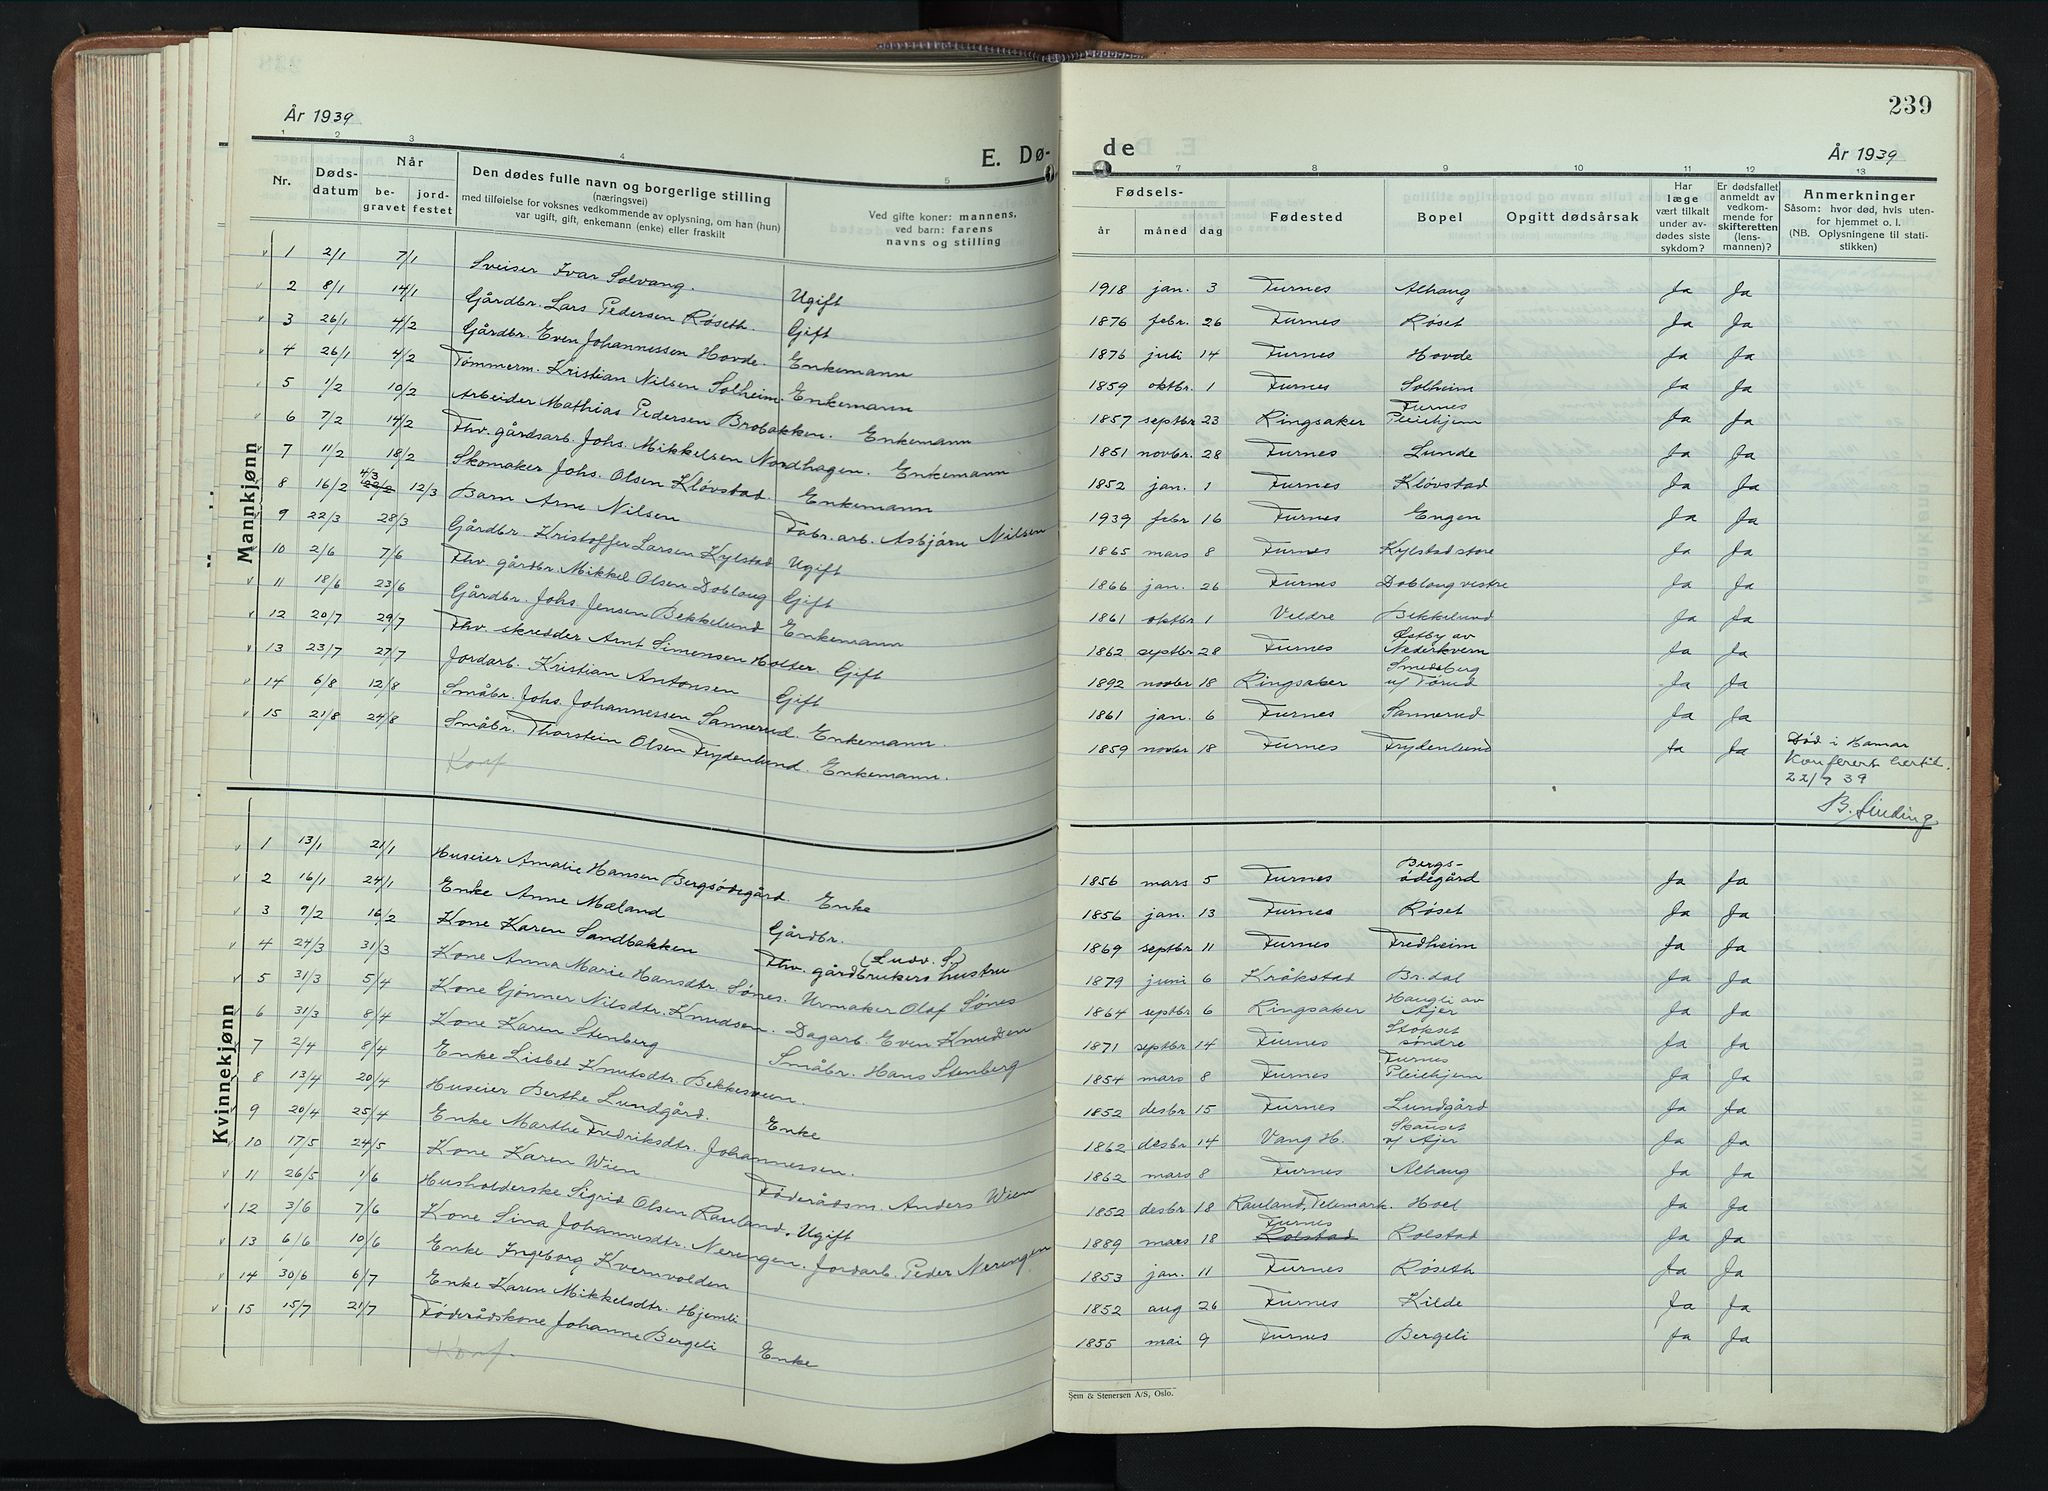 År 1939
E. Dø-
1 2 3 4 5
Nr.
Døds-
datum
Når
be-
gravet
jord-
festet
Den dødes fulle navn og borgerlige stilling
(næringsvei)
med tilføielse for voksnes vedkommende av oplysning, om han (hun)
var ugift, gift, enkemann (enke) eller fraskilt
Ved gifte koner: mannens,
ved barn: farens
navns og stilling
Mannkjønn
1 2/1 7/1 Sveiser Ivar Solvang. Ugift
2 8/1 14/1 Gårdbr. Lars Pedersen Røseth. Gift
3 26/1 4/2 Gårdbr. Even Johannessen Hovde. Enkemann
4 26/1 4/2 Tømmerm. Kristian Nilsen Solheim. Enkemann
5 1/2 10/2 Arbeider Mathias Pedersen Brobakken. Enkemann
6 7/2 14/2 Fhv. gårdsarb. Johs. Mikkelsen Nordhagen. Enkemann
7 11/2 18/2 Skomaker Johs. Olsen Kløvstad. Enkemann
8 16/2 4/3 22/2 12/3 Barn Arne Nilsen Fabr.arb. Asbjørn Nilsen
9 22/3 28/3 Gårdbr. Kristoffer Larsen Kylstad Ugift
10 2/6 7/6 Fhv. gårdbr. Mikkel Olsen Dobloug Gift
11 18/6 23/6 Gårdbr. Johs. Jensen Bekkelund Enkemann
12 20/7 29/7 Fhv. skredder Arnt Simensen Holter. Gift
13 23/7 27/7 Jordarb. Kristian Antonsen Gift
14 6/8 12/8 Småbr. Johs. Johannessen Sannerud. Enkemann.
15 21/8 24/8 Småbr. Thorstein Olsen Frydenlund. Enkemann.
Konf
Kvinnekjønn
1 13/1 21/1 Huseier Amalie Hansen Bergsødegård. Enke
2 16/1 24/1 Enke Anne Maland
3 9/2 16/2 Kone Karen Sandbakken Gårdbr.
(Ludv. S)
4 24/3 31/3 Kone Anna Marie Hansdtr. Sønes. Fhv. gårdbrukers hustru
5 31/3 5/4 Kone Gjønner Nilsdtr. Knudsen. Urmaker Olaf Sønes
6 31/3 8/4 Kone Karen Stenberg Dagarb. Even Knudsen
7 2/4 8/4 Enke Lisbet Knutsdtr. Bekkesveen. Småbr. Hans Stenberg
8 13/4 20/4 Huseier Berthe Lundgård. Enke
9 20/4 25/4 Enke Marthe Fredriksdtr. Johannessen.
10 17/5 24/5 Kone Karen Wien Føderådsm. Anders Wien
11 26/5 1/6 Husholderske Sigrid Olsen Rauland. Ugift
12 3/6 7/6 Kone Sina Johannesdtr. Nerengen. Jordarb. Peder Nerengen
13 6/6 10/6 Enke Ingeborg Kvernvolden
14 30/6 6/7 Enke Karen Mikkelsdtr. Hjemli
15 15/7 21/7 Føderådskone Johanne Bergeli Enke
Konf.
239
de
År 1939
7 8 9 10 11 12 13
Fødsels-
år måned dag
Fødested
Bopel
Opgitt dødsårsak
Har
læge
vært tilkalt
under av-
dødes siste
sykdom?
Er dødsfallet
anmeldt av
vedkom-
mende for
skifteretten
(lens-
mannen)?
Anmerkninger
Såsom: hvor død, hvis uten-
for hjemmet o. l.
(NB. Oplysningene til stati-
stikken)
1918 jan. 3 Furnes Alhaug Ja Ja
1876 febr. 26 Furnes Røset Ja Ja
1876 juli 14 Furnes Hovde Ja Ja
1859 oktbr. 1 Furnes Solheim Ja Ja
1857 septbr 23 Ringsaker Furnes Pleiehjem Ja Ja
1851 novbr. 28 Furnes Lunde Ja Ja
1852 jan. 1 Furnes Kløvstad Ja Ja
1939 febr 16 Furnes Engen Ja Ja
1865 mars 8 Furnes Kylstad store Ja Ja
1866 jan. 26 Furnes Dobloug vestre Ja Ja
1861 oktbr 1 Veldre Bekkelund Ja Ja
1862 septbr 28 Furnes Østby av Nederkvern Ja Ja
1892 novbr 18 Ringsaker Smedsberg u/ Törud Ja Ja
1861 jan. 6 Furnes Sannerud Ja Ja
1859 novbr 18 Furnes Frydenlund Ja Ja Død i Hamar
Konferert hertil.
22/9 39
B. Sinding
1856 mars 5 Furnes Bergs-ødegård Ja Ja
1856 jan. 13 Furnes Røset Ja Ja
1869 septbr 11 Furnes Fredheim Ja Ja
1879 juni 6 Kråkstad Br.dal Ja Ja
1864 septbr 6 Ringsaker Haugli av Ajer Ja Ja
1871 septbr 14 Furnes Stokset søndre Ja Ja
1854 mars 8 Furnes Furnes Pleiehjem Ja Ja
1852 desbr 15 Furnes Lundgård Ja Ja
1862 desbr 14 Vang H. Skauset u/ Ajer Ja Ja
1862 mars 8 Furnes Alhaug Ja Ja
1852 desbr 18 Rauland, Telemark. Hoel Ja Ja
1889 mars 18 Furnes Rolstad Rolstad Ja Ja
1853 jan. 11 Furnes Røseth Ja Ja
1852 aug 26 Furnes Kilde Ja Ja
1855 mai 9 Furnes Bergeli Ja Ja
Sem & Stenersen A/S, Oslo.